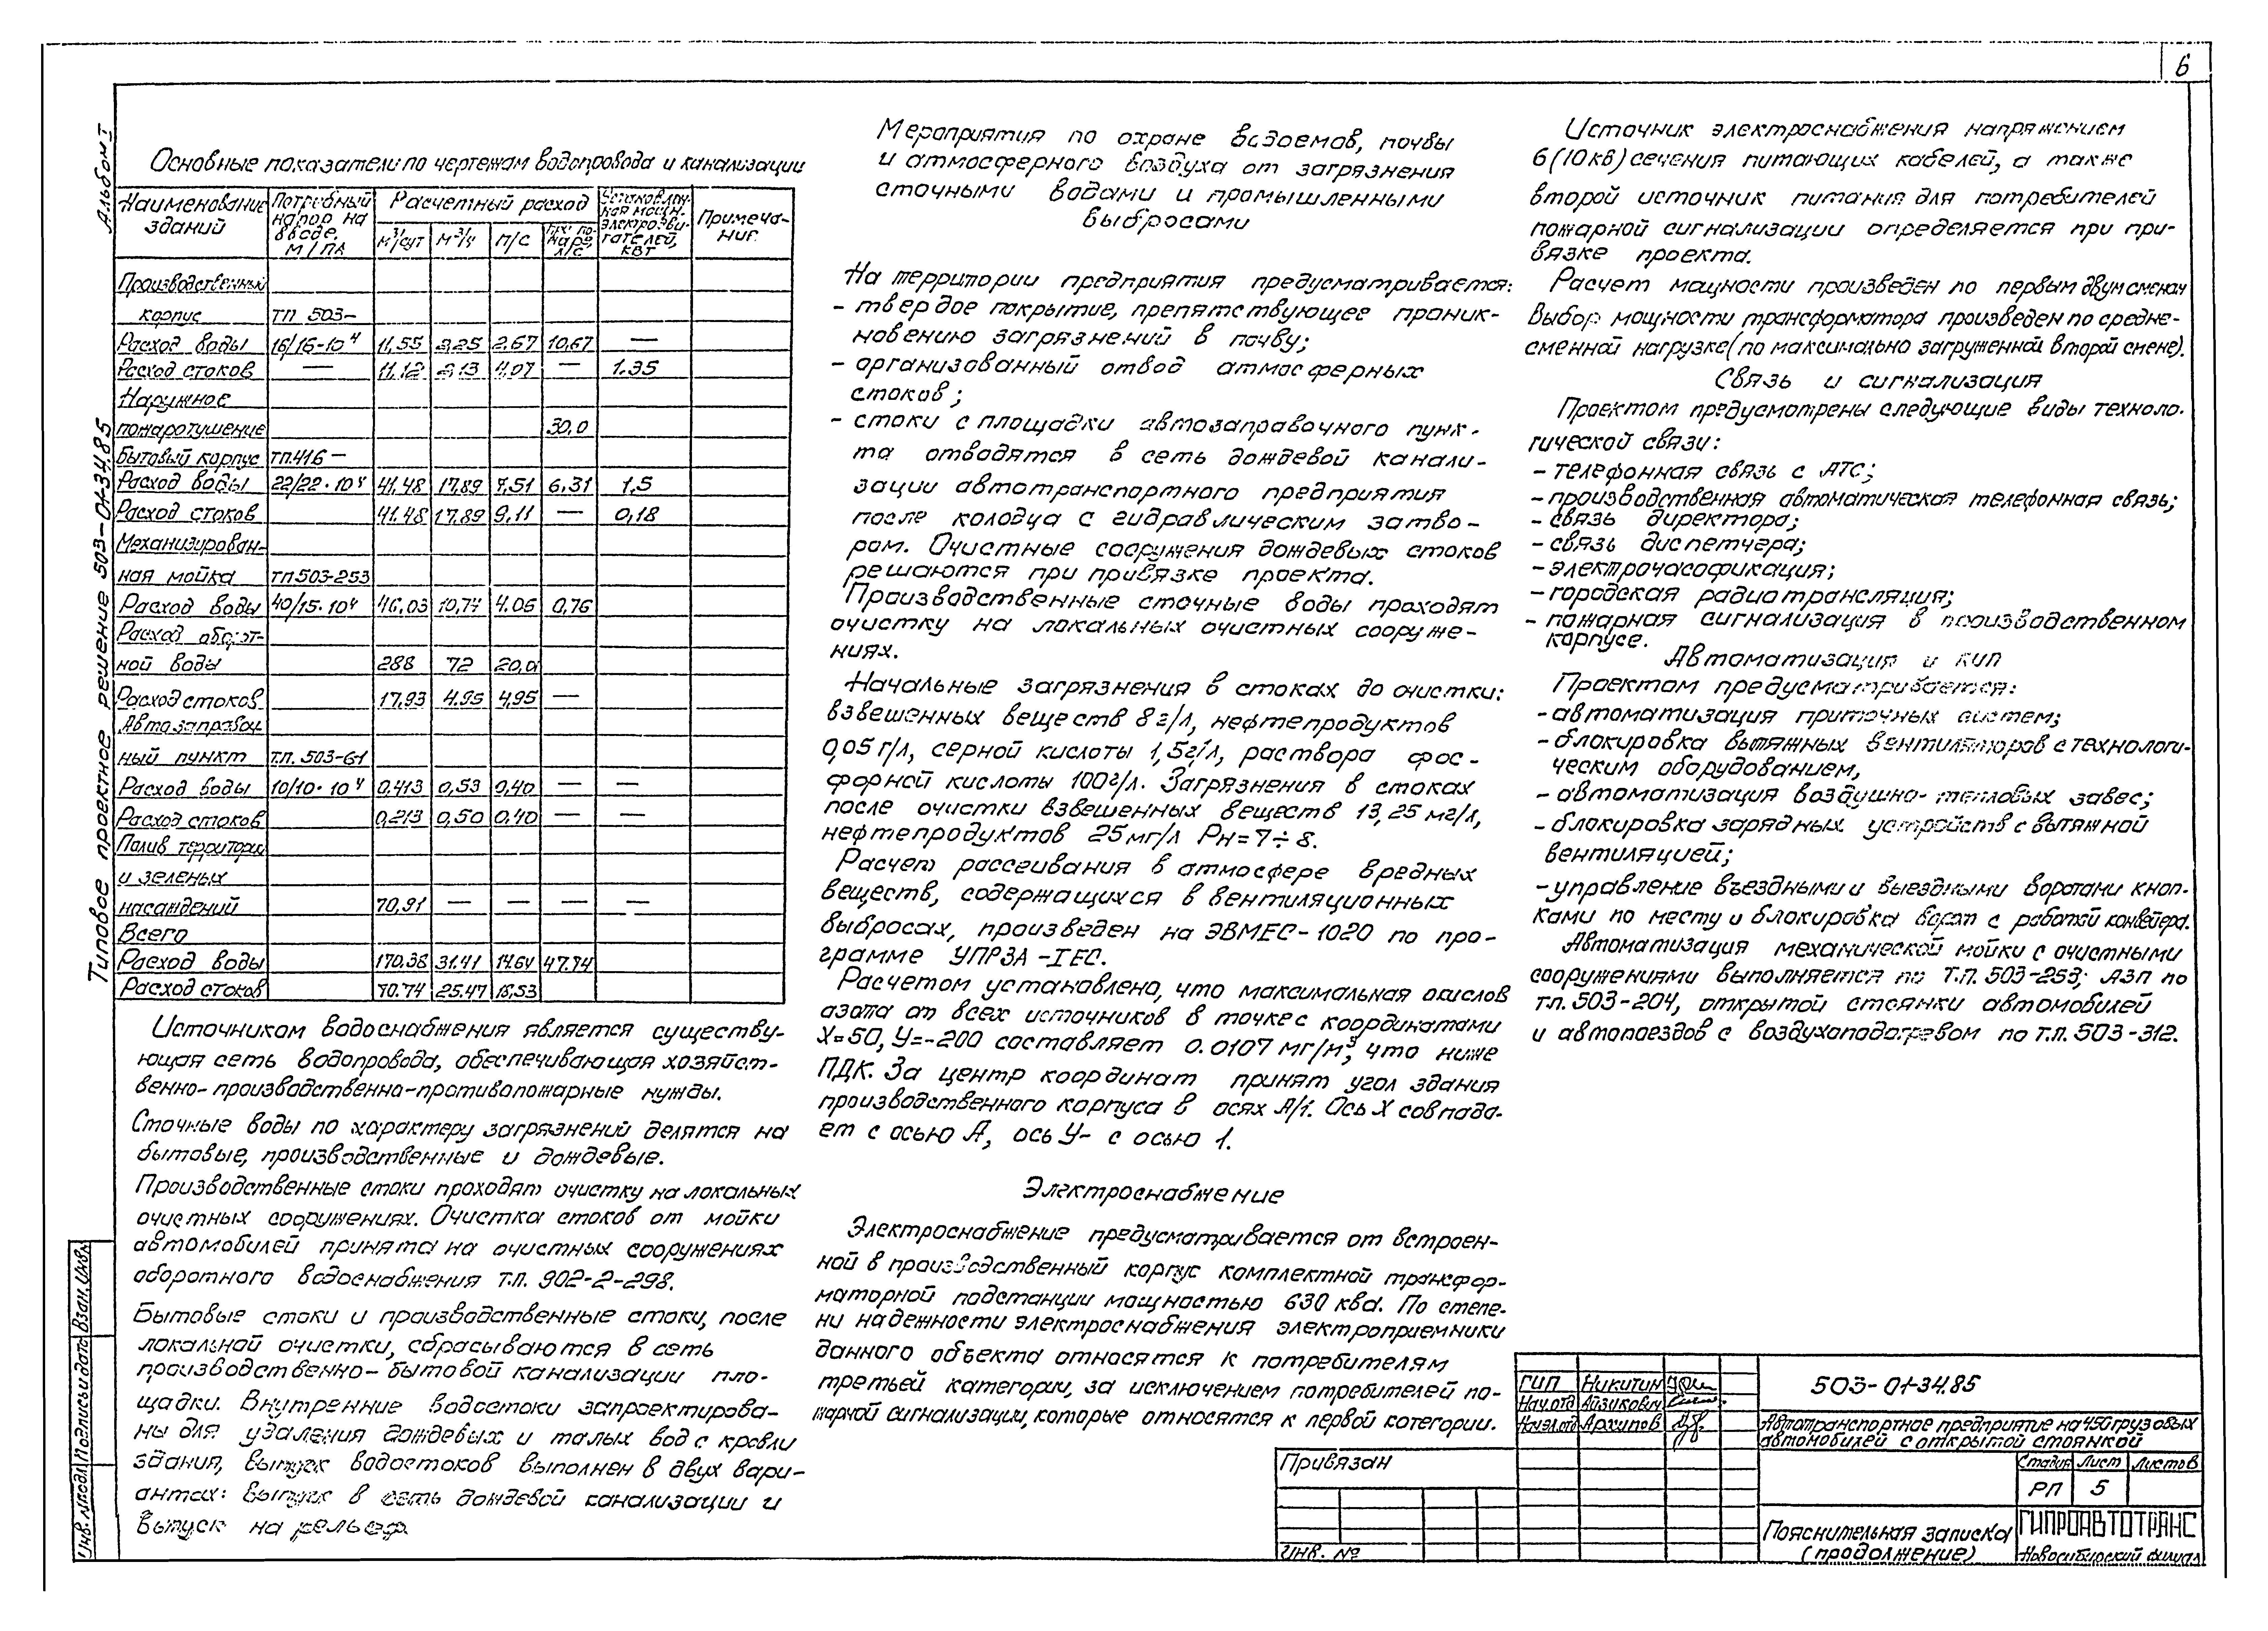 6
Альбом I
Типовое проектное решение 503-01-34.85
Основные показатели по чертежам водопровода и канализации
Наименование зданий | Потребный напор на вводе, М/ПА | Расчетный расход | Установленная мощн. электродвигателей, КВТ | Примечание
м³/сут | м³/ч | л/с | При пожаре, л/с
Производственный
корпус | ТП 503-
Расход воды | 16/16·10⁴ | 11,55 | 2,67 | 10,67 | —
Расход стоков | — | 11,12 | — | 1.35
Наружное
пожаротушение | 30,0
Бытовый корпус | тп.416-
Расход воды | 22/22·10⁴ | 41,48 | 17,89 | 7,51 | 6,31 | 1,5
Расход стоков | 41.48 | 17,89 | 9,11 | — | 0,18
Механизирован-
ная мойка | тп503-253
Расход воды | 40/15·10⁴ | 46,03 | 10,74 | 4.06 | 0,76
Расход оборот-
ной воды | 288 | 72 | 20,0
Расход стоков | 17,93 | 4.95 | 4,95 | —
Автозаправоч-
ный пункт | т.п. 503-61
Расход воды | 10/10·10⁴ | 0,413 | 0,53 | 0,40 | — | —
Расход стоков | 0,213 | 0,50 | 0,40 | — | —
Полив территории
и зеленых
насаждений | 70,91 | — | — | — | —
Всего
Расход воды | 170.38 | 31.41 | 14.64 | 47.74
Расход стоков | 70.74 | 25.47 | 18,53
Источником водоснабжения является существу-
ющая сеть водопровода, обеспечивающая хозяйст-
венно-производственно-противопожарные нужды.
Сточные воды по характеру загрязнений делятся на
бытовые, производственные и дождевые.
Производственные стоки проходят очистку на локальных
очистных сооружениях. Очистка стоков от мойки
автомобилей принята на очистных сооружениях
оборотного водоснабжения т.п. 902-2-298.
Бытовые стоки и производственные стоки, после
локальной очистки, сбрасываются в сеть
производственно-бытовой канализации пло-
щадки. Внутренние водостоки запроектирова-
ны для удаления дождевых и талых вод с кровли
здания, выпуск водостоков выполнен в двух вари-
антах: выпуск в сеть дождевой канализации и
выпуск на рельеф.
Мероприятия по охране водоемов, почвы
и атмосферного воздуха от загрязнения
сточными водами и промышленными
выбросами
На территории предприятия предусматривается:
- твердое покрытие, препятствующее проник-
новению загрязнений в почву;
- организованный отвод атмосферных
стоков;
- стоки с площадки автозаправочного пунк-
та отводятся в сеть дождевой канали-
зации автотранспортного предприятия
после колодца с гидравлическим затво-
ром. Очистные сооружения дождевых стоков
решаются при привязке проекта.
Производственные сточные воды проходят
очистку на локальных очистных сооруже-
ниях.
Начальные загрязнения в стоках до очистки:
взвешенных веществ 8 г/л, нефтепродуктов
0,05 г/л, серной кислоты 1,5г/л, раствора фос-
форной кислоты 100г/л. Загрязнения в стоках
после очистки взвешенных веществ 13,25 мг/л,
нефтепродуктов 25мг/л Рн=7÷8.
Расчет рассеивания в атмосфере вредных
веществ, содержащихся в вентиляционных
выбросах, произведен на ЭВМЕС-1020 по про-
грамме УПРЗА-IЕС.
Расчетом установлено, что максимальная окислов
азота от всех источников в точке с координатами
Х=50, У=-200 составляет 0.0107 мг/м³, что ниже
ПДК. За центр координат принят угол здания
производственного корпуса в осях А/1. Ось Х совпада-
ет с осью А, ось У- с осью 1.
Электроснабжение
Электроснабжение предусматривается от встроен-
ной в производственный корпус комплектной трансфор-
маторной подстанции мощностью 630 ква. По степе-
ни надежности электроснабжения электроприемники
данного объекта относятся к потребителям
третьей категории, за исключением потребителей по-
жарной сигнализации, которые относятся к первой категории.
Источник электроснабжения напряжением
6(10кв) сечения питающих кабелей, а также
второй источник питания для потребителей
пожарной сигнализации определяется при при-
вязке проекта.
Расчет мощности произведен по первым двум сменам
Выбор мощности трансформатора произведен по средне-
сменной нагрузке(по максимально загруженной второй смене).
Связь и сигнализация
Проектом предусмотрены следующие виды техноло-
гической связи:
- телефонная связь с АТС;
- производственная автоматическая телефонная связь;
- связь директора;
- связь диспетчера;
- электрочасофикация;
- городская радиотрансляция;
- пожарная сигнализация в производственном
корпусе.
Автоматизация и кип
Проектом предусматривается:
- автоматизация приточных систем;
- блокировка вытяжных вентиляторов с технологи-
ческим оборудованием,
- автоматизация воздушно-тепловых завес;
- блокировка зарядных устройств с вытяжной
вентиляцией;
- управление въездными и выездными воротами кноп-
ками по месту и блокировка ворот с работой конвейера.
Автоматизация механической мойки с очистными
сооружениями выполняется по т.п. 503-253; АЗП по
т.п. 503-204, открытой стоянки автомобилей
и автопоездов с воздухоподогревом по т.п. 503-312.
ГИП Никитин
Нач.отд Айзикович
Нач.эл.отд Архипов
503-01-34.85
Автотранспортное предприятие на 450 грузовых
автомобилей с открытой стоянкой
Стадия Лист Листов
РП 5
Пояснительная записка
(продолжение)
ГИПРОАВТОТРАНС
Новосибирский филиал
Привязан
Инв. №
Инв.№подл. Подпись и дата Взам.инв.№